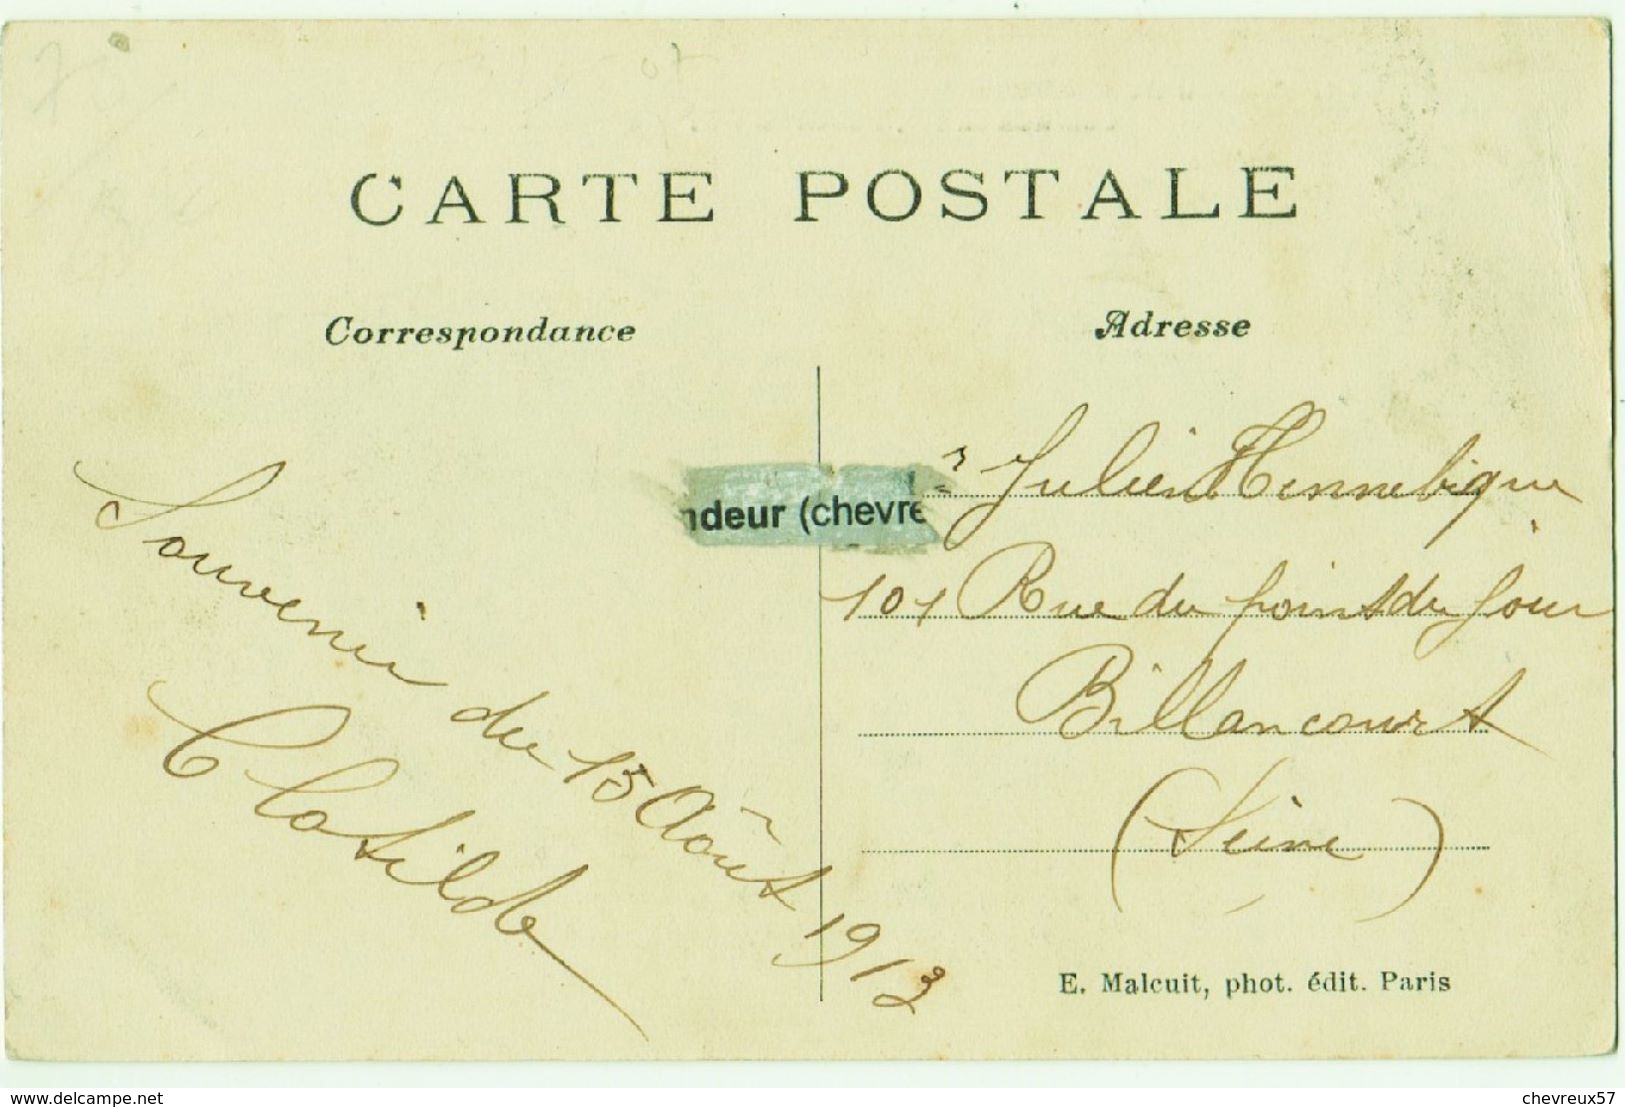 CARTE POSTALE
Correspondance
Adresse
Souvenir du 15 Août 1913
Clotilde
ndeur (chevre
Julien Hennebique
101 Rue du point du jour
Billancourt
(Seine)
E. Malcuit, phot. édit. Paris
www.delcampe.net
chevreux57